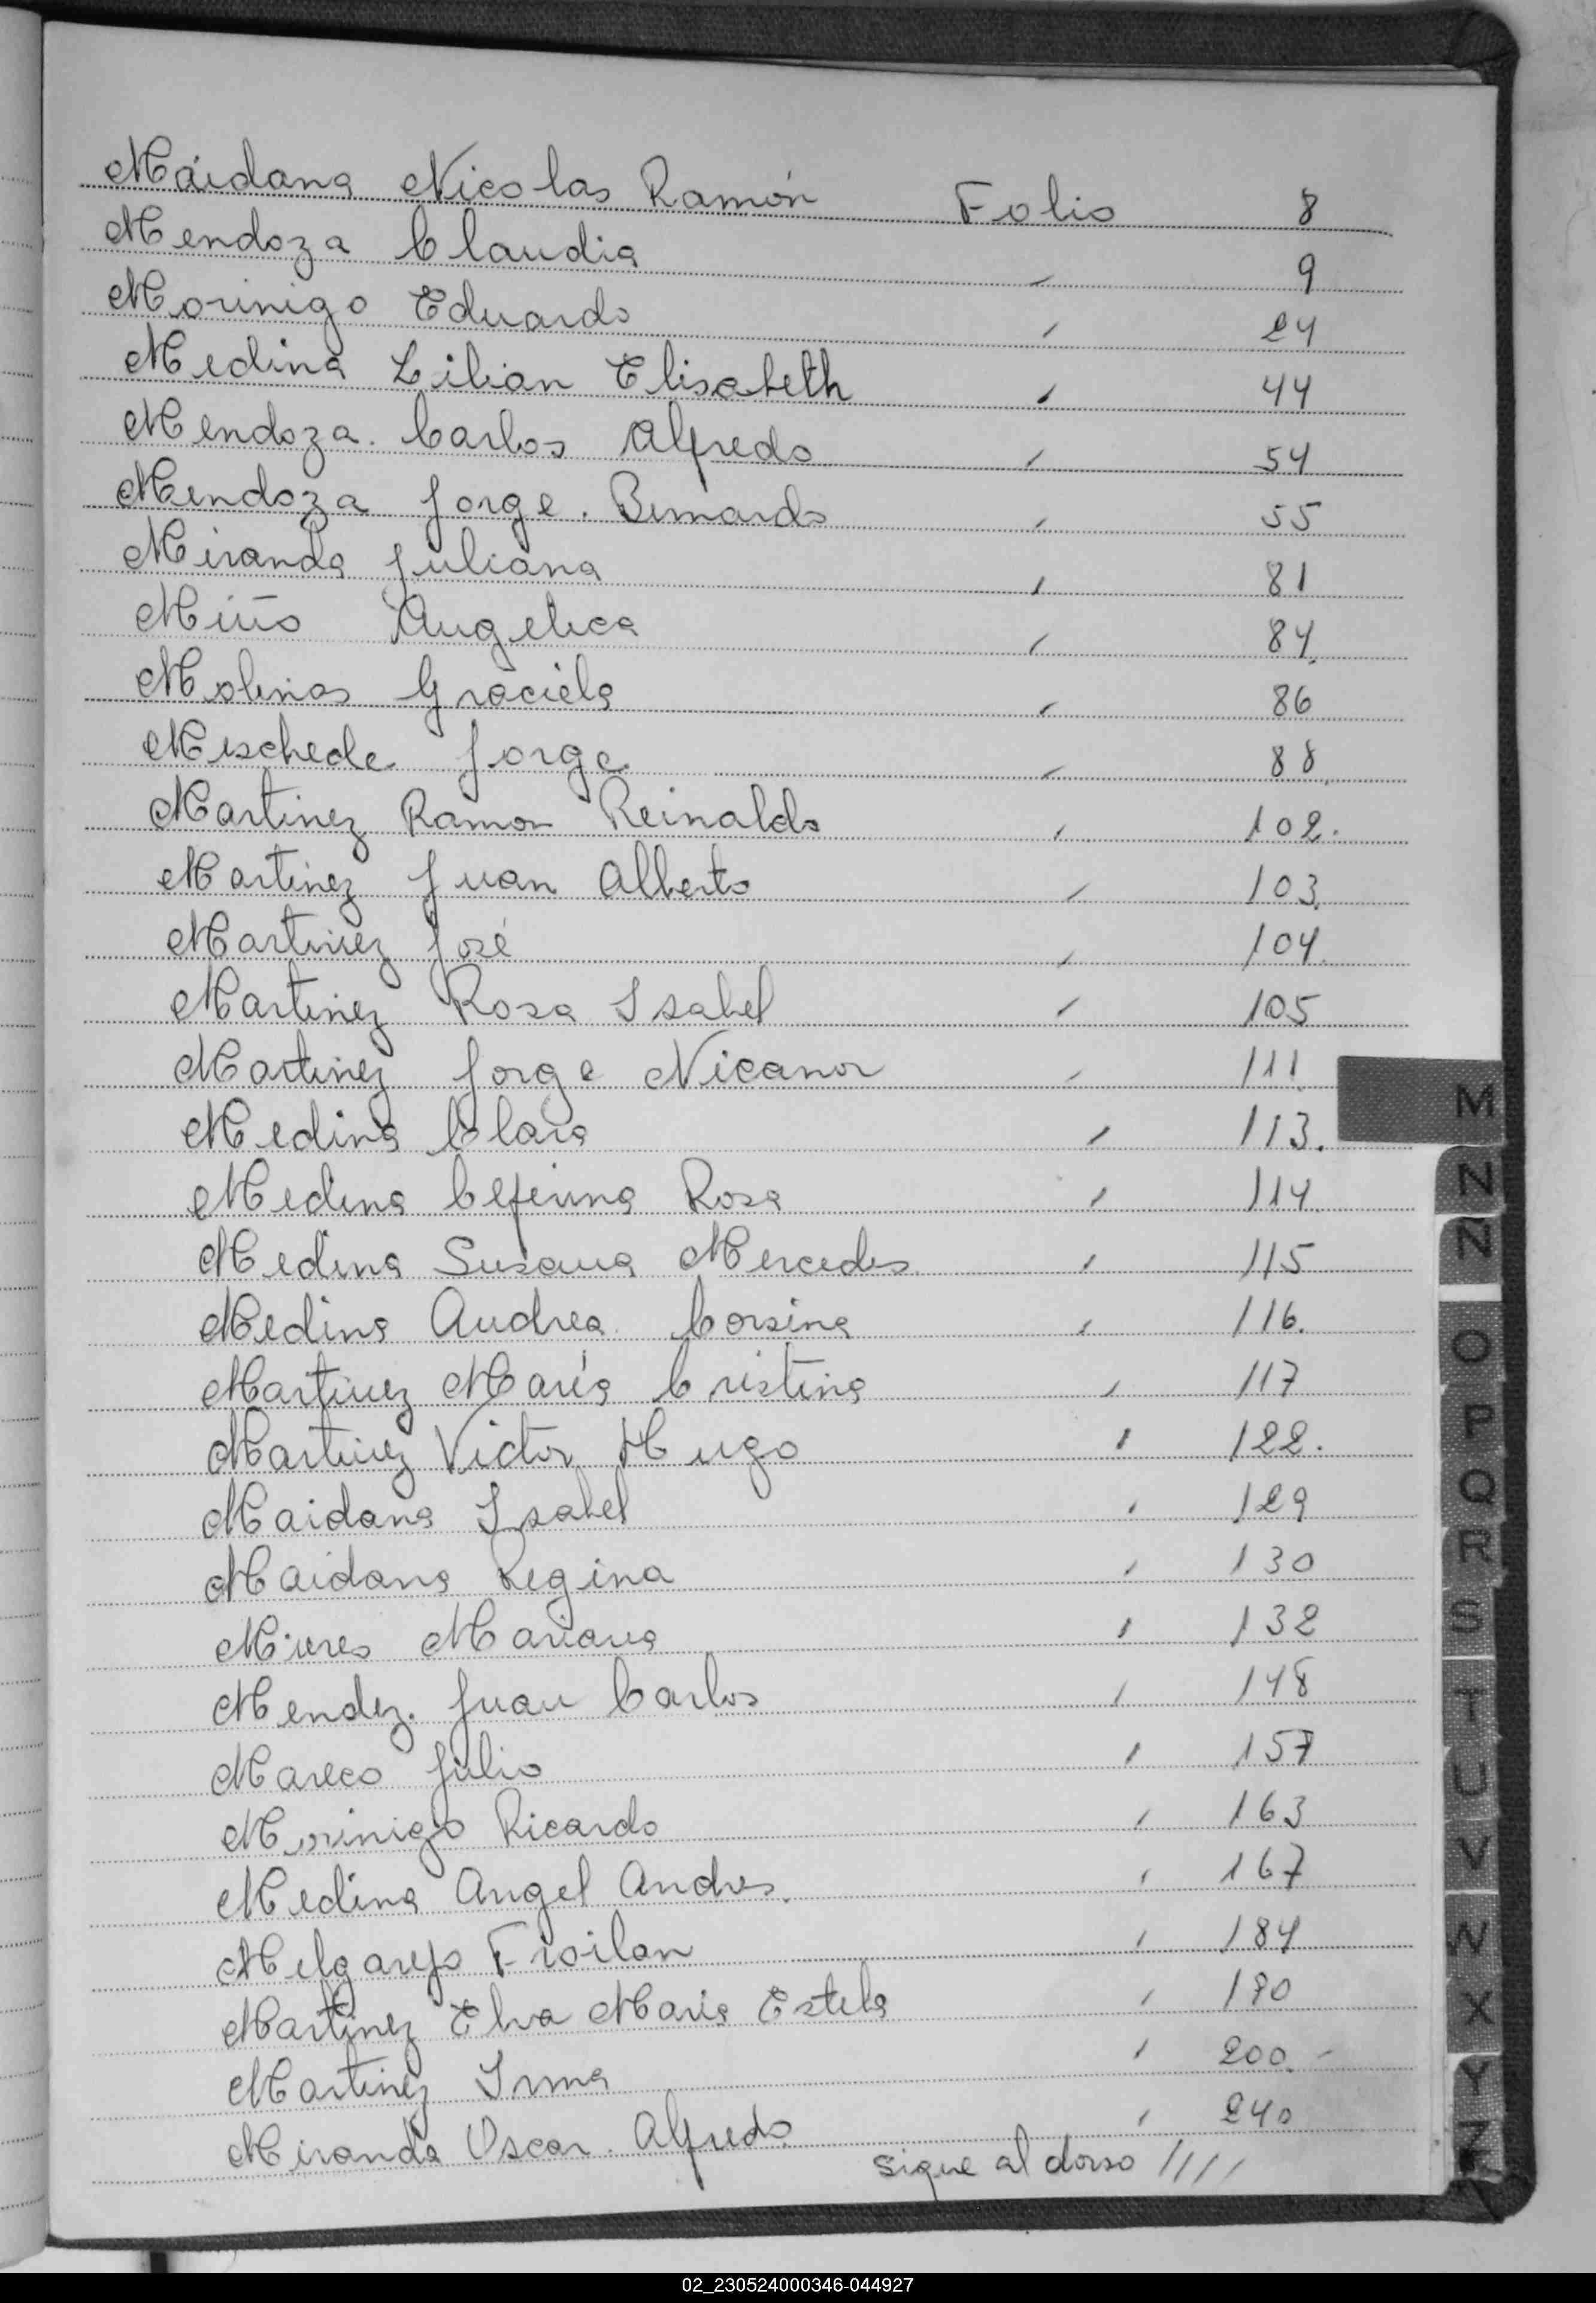 Maidana Nicolas Ramón Folio 8
Mendoza Claudia " 9
Morinigo Eduardo " 24
Medina Lilian Elisabeth " 44
Mendoza. Carlos Alfredo " 54
Mendoza Jorge. Bernardo " 55
Miranda Juliana " 81
Miño Angelica " 84.
Molinas Graciela " 86
Meschede Jorge " 88.
Martinez Ramon Reinaldo " 102.
Martinez Juan Alberto " 103.
Martinez José " 104.
Martinez Rosa Isabel " 105
Martinez Jorge Nicanor " 111.
Medina Clara " 113.
Medina Ceferina Rosa " 114.
Medina Susana Mercedes " 115
Medina Andrea Corsina " 116.
Martinez María Cristina " 117
Martinez Victor Hugo " 122.
Maidana Isabel " 129
Maidana Regina " 130
Mieres Mariana " 132
Mendez. Juan Carlos " 148
Mareco Julio " 157
Morinigo Ricardo " 163
Medina Angel Andres. " 167
Melgarejo Froilan " 184
Martinez Elva Maria Estela " 190
Martinez Irma " 200. -
Miranda Oscar. Alfredo " 240
sigue al dorso ////
M
N
Ñ
O
P
Q
R
S
T
U
V
W
X
Y
Z
02_230524000346-044927